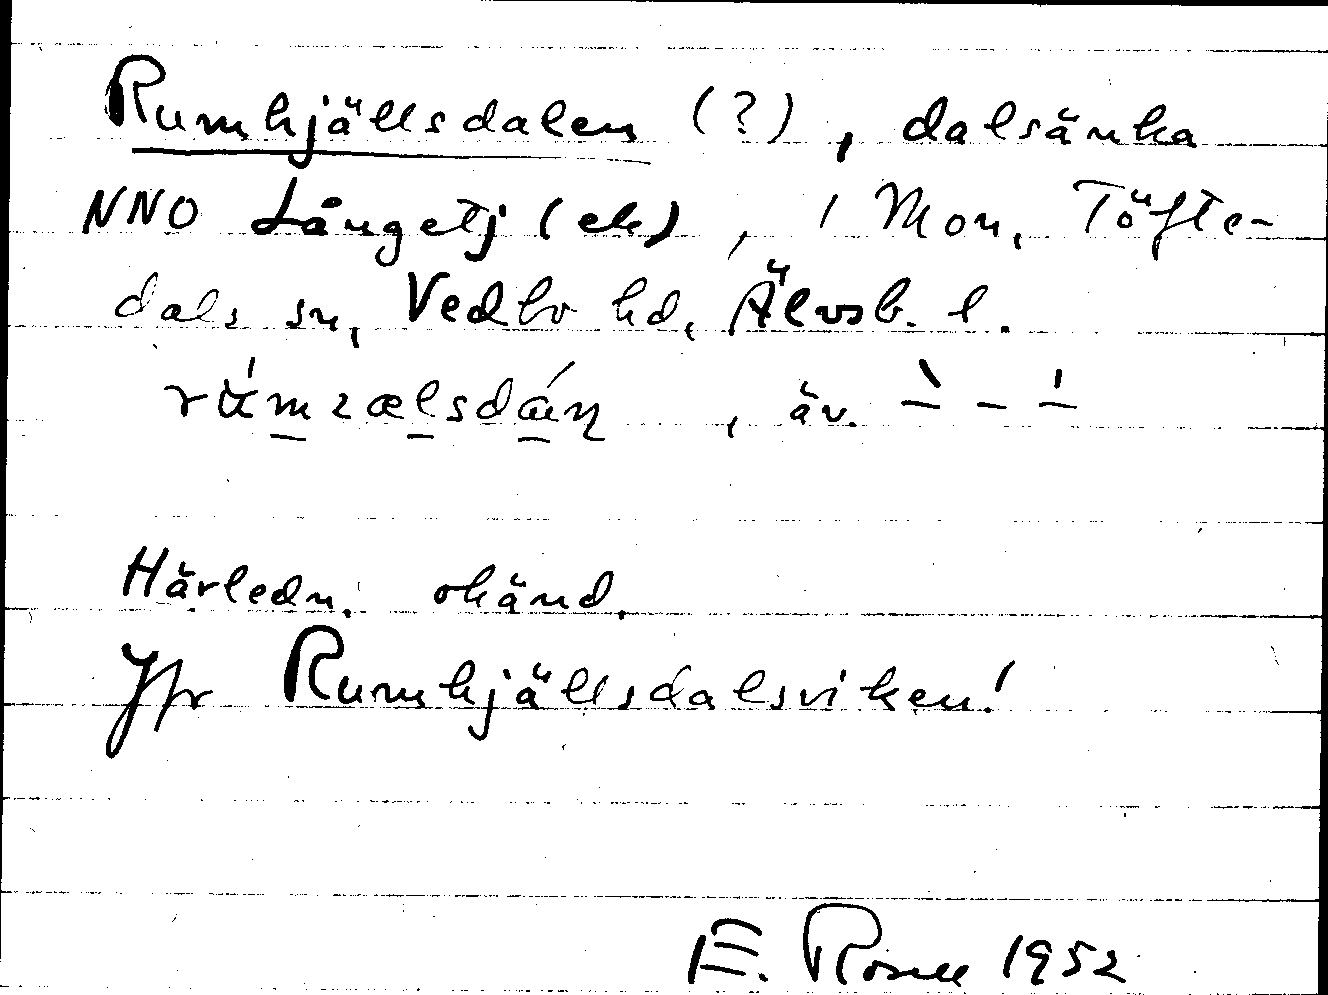 Rumkjällsdalen (?), dalsänka
NNO Långetj (ek), 1 Mon, Töfte-
dals sn, Vedbo hd, Älvsb. l.
, äv. ` - '
Härledn. okänd.
Jfr Rumkjällsdalsviken!
E. Rosell 1952